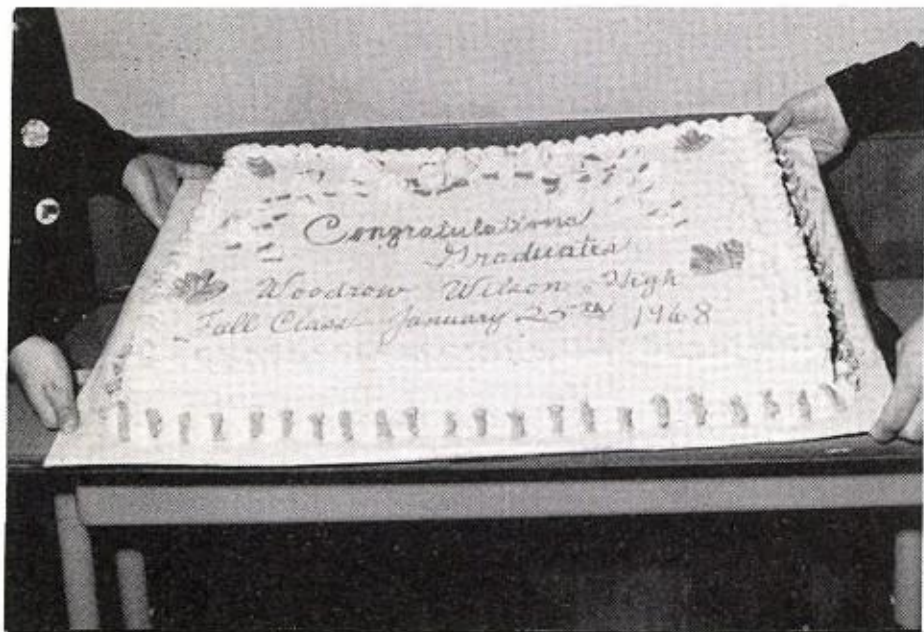 Congratulations
Graduates
Woodrow Wilson High
Fall Class January 25th 1968